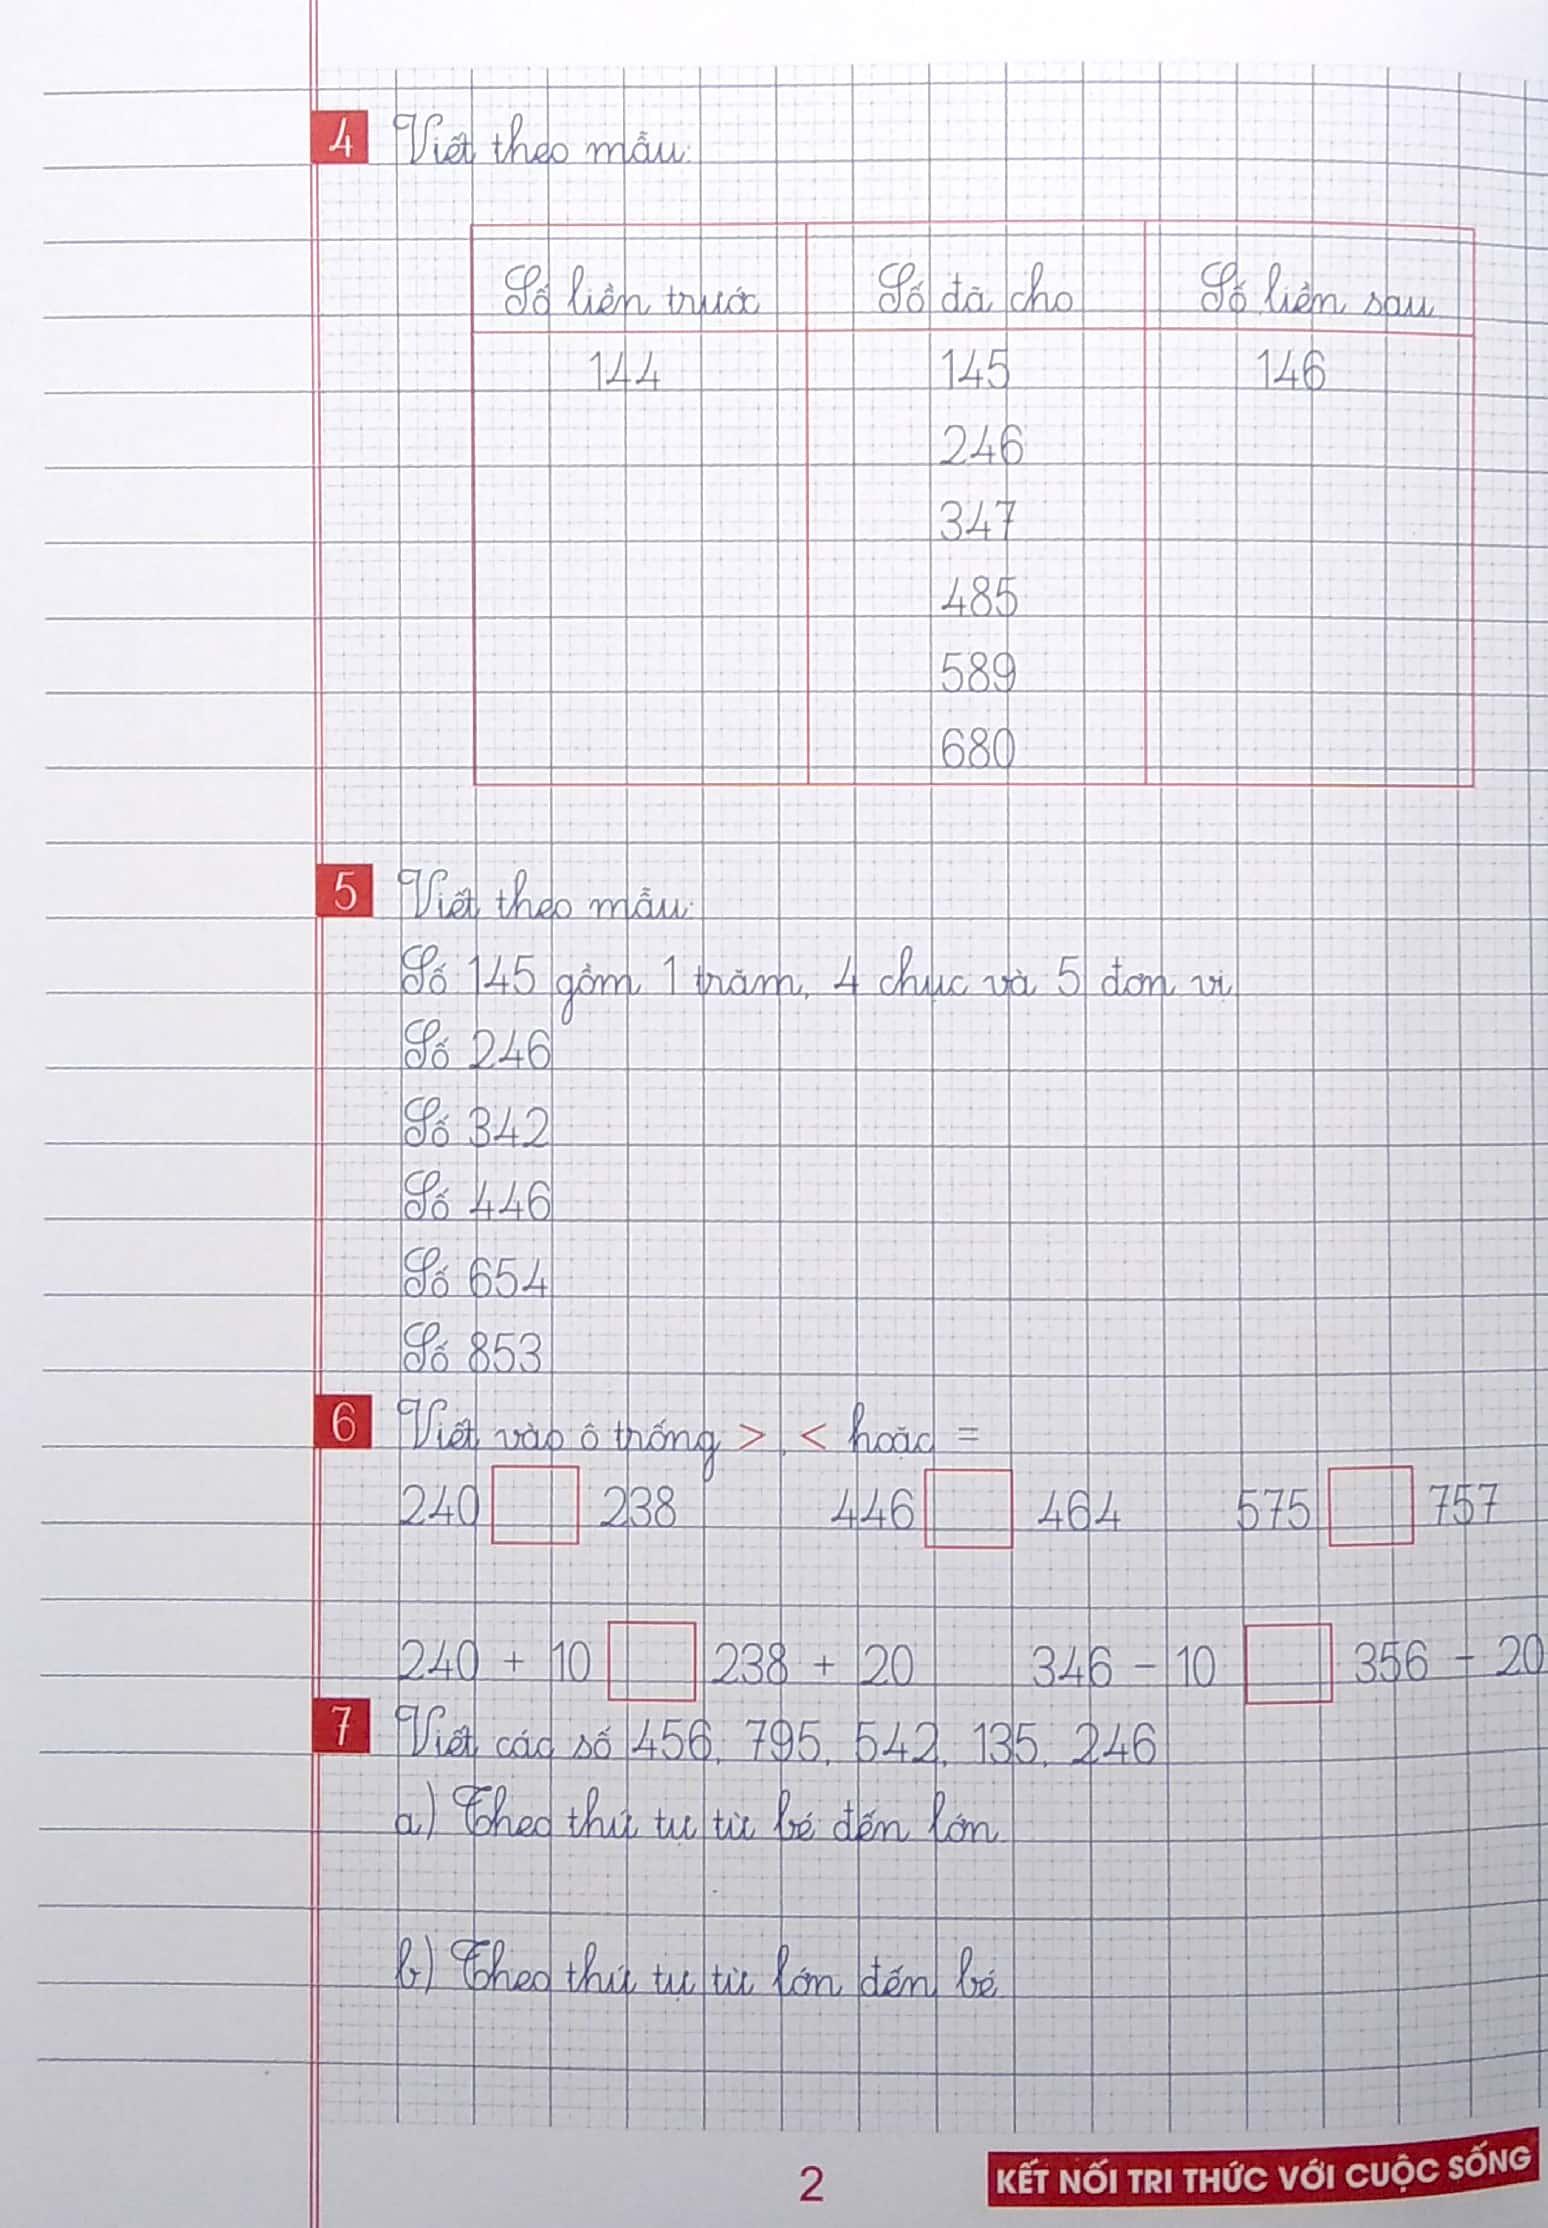 4 Viết theo mẫu:
Số liền trước Số đã cho Số liền sau
144 145 146
246
347
485
589
680
5 Viết theo mẫu:
Số 145 gồm 1 trăm, 4 chục và 5 đơn vị
Số 246
Số 342
Số 446
Số 654
Số 853
6 Viết vào ô trống >, < hoặc =
240 238 446 464 575 757
240 + 10 238 + 20 346 - 10 356 - 20
7 Viết các số 456, 795, 542, 135, 246
a) Theo thứ tự từ bé đến lớn
b) Theo thứ tự từ lớn đến bé
2
KẾT NỐI TRI THỨC VỚI CUỘC SỐNG